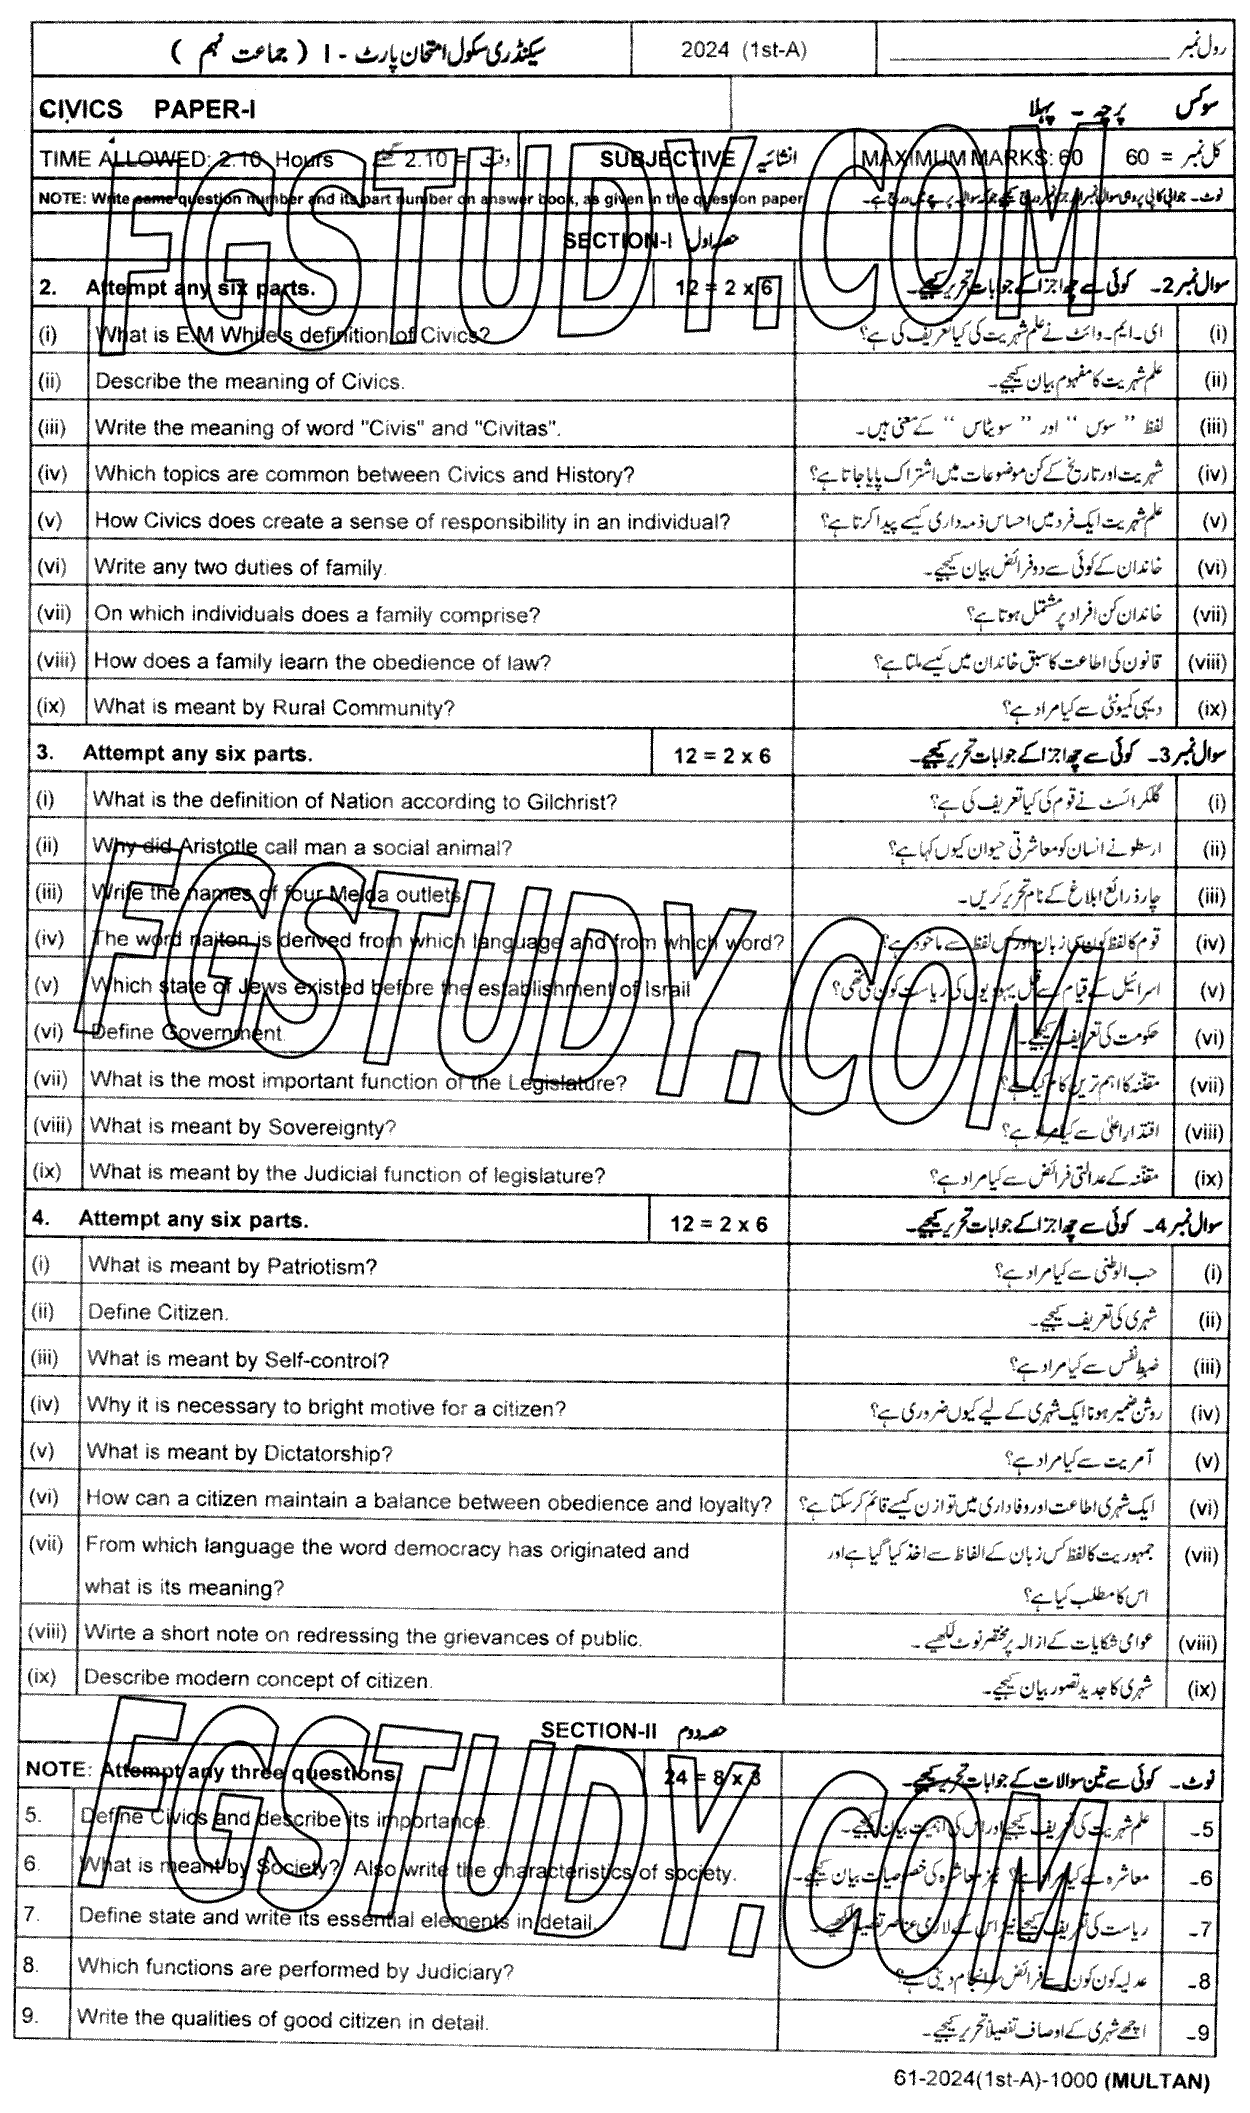 سیکنڈری سکول امتحان پارٹ - I ( جماعت نہم ) 2024 (1st-A) رول نمبر
CIVICS PAPER-I سوکس پرچہ - پہلا
TIME ALLOWED: 2.10 Hours وقت = 2.10 گھنٹے SUBJECTIVE / انشائیہ MAXIMUM MARKS: 60 کل نمبر = 60
NOTE: Write same question number and its part number on answer book, as given in the question paper. نوٹ۔ جوابی کاپی پر وہی سوال نمبر اور جز نمبر درج کیجیے جو کہ سوالیہ پرچے میں درج ہے۔
SECTION-I حصہ اول
2. Attempt any six parts. 12 = 2 x 6 سوال نمبر 2۔ کوئی سے چھ اجزا کے جوابات تحریر کیجیے۔
(i) What is E.M White's definition of Civics? ای۔ ایم۔ وائٹ نے علم شہریت کی کیا تعریف کی ہے؟ (i)
(ii) Describe the meaning of Civics. علم شہریت کا مفہوم بیان کیجیے۔ (ii)
(iii) Write the meaning of word "Civis" and "Civitas". لفظ " سوس " اور " سویٹاس " کے معنی ہیں۔ (iii)
(iv) Which topics are common between Civics and History? شہریت اور تاریخ کے کن موضوعات میں اشتراک پایا جاتا ہے؟ (iv)
(v) How Civics does create a sense of responsibility in an individual? علم شہریت ایک فرد میں احساس ذمہ داری کیسے پیدا کرتا ہے؟ (v)
(vi) Write any two duties of family. خاندان کے کوئی سے دو فرائض بیان کیجیے۔ (vi)
(vii) On which individuals does a family comprise? خاندان کن افراد پر مشتمل ہوتا ہے؟ (vii)
(viii) How does a family learn the obedience of law? قانون کی اطاعت کا سبق خاندان میں کیسے ملتا ہے؟ (viii)
(ix) What is meant by Rural Community? دیہی کمیونٹی سے کیا مراد ہے؟ (ix)
3. Attempt any six parts. 12 = 2 x 6 سوال نمبر 3۔ کوئی سے چھ اجزا کے جوابات تحریر کیجیے۔
(i) What is the definition of Nation according to Gilchrist? گلکرائسٹ نے قوم کی کیا تعریف کی ہے؟ (i)
(ii) Why did Aristotle call man a social animal? ارسطو نے انسان کو معاشرتی حیوان کیوں کہا ہے؟ (ii)
(iii) Write the names of four Meida outlets. چار ذرائع ابلاغ کے نام تحریر کریں۔ (iii)
(iv) The word naiton is derived from which language and from which word? قوم کا لفظ کون سی زبان اور کس لفظ سے ماخوذ ہے؟ (iv)
(v) Which state of Jews existed before the establishment of Israil اسرائیل کے قیام سے قبل یہودیوں کی ریاست کون سی تھی؟ (v)
(vi) Define Government. حکومت کی تعریف کیجیے۔ (vi)
(vii) What is the most important function of the Legislature? مقننہ کا اہم ترین کام کیا ہے؟ (vii)
(viii) What is meant by Sovereignty? اقتدار اعلیٰ سے کیا مراد ہے؟ (viii)
(ix) What is meant by the Judicial function of legislature? مقننہ کے عدالتی فرائض سے کیا مراد ہے؟ (ix)
4. Attempt any six parts. 12 = 2 x 6 سوال نمبر 4۔ کوئی سے چھ اجزا کے جوابات تحریر کیجیے۔
(i) What is meant by Patriotism? حب الوطنی سے کیا مراد ہے؟ (i)
(ii) Define Citizen. شہری کی تعریف کیجیے۔ (ii)
(iii) What is meant by Self-control? ضبط نفس سے کیا مراد ہے؟ (iii)
(iv) Why it is necessary to bright motive for a citizen? روشن ضمیر ہونا ایک شہری کے لیے کیوں ضروری ہے؟ (iv)
(v) What is meant by Dictatorship? آمریت سے کیا مراد ہے؟ (v)
(vi) How can a citizen maintain a balance between obedience and loyalty? ایک شہری اطاعت اور وفاداری میں توازن کیسے قائم کرسکتا ہے؟ (vi)
(vii) From which language the word democracy has originated and جمہوریت کا لفظ کس زبان کے الفاظ سے اخذ کیا گیا ہے اور (vii)
what is its meaning? اس کا مطلب کیا ہے؟
(viii) Wirte a short note on redressing the grievances of public. عوامی شکایات کے ازالہ پر مختصر نوٹ لکھیے۔ (viii)
(ix) Describe modern concept of citizen. شہری کا جدید تصور بیان کیجیے۔ (ix)
SECTION-II حصہ دوم
NOTE: Attempt any three questions. 24 = 8 x 3 نوٹ۔ کوئی سے تین سوالات کے جوابات تحریر کیجیے۔
5. Define Civics and describe its importance. علم شہریت کی تعریف کیجیے اور اس کی اہمیت بیان کیجیے۔ 5۔
6. What is meant by Society? Also write the characteristics of society. معاشرہ سے کیا مراد ہے؟ نیز معاشرہ کی خصوصیات بیان کیجیے۔ 6۔
7. Define state and write its essential elements in detail. ریاست کی تعریف کیجیے نیز اس کے لازمی عناصر تفصیلاً لکھیے۔ 7۔
8. Which functions are performed by Judiciary? عدلیہ کون کون سے فرائض سرانجام دیتی ہے؟ 8۔
9. Write the qualities of good citizen in detail. اچھے شہری کے اوصاف تفصیلاً تحریر کیجیے۔ 9۔
61-2024(1st-A)-1000 (MULTAN)
FGSTUDY.COM
FGSTUDY.COM
FGSTUDY.COM